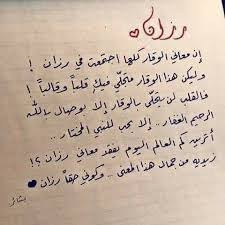 رزان
إن معاني الوقار كلها اجتمعت في رزان !
وليكن هذا الوقار متجلّي فيكِ قلباً وقالباً !
فالقلب لن يتحلّى بالوقار إلا بوصال بالله
الرحيم الغفار .. إلا بحب للنبي المختار ..
أتريدين كم العالم اليوم يفقد معاني رزان ؟!
زيديه من جمال هذا المعنى .. وكوني حقاً رزان
بشائر